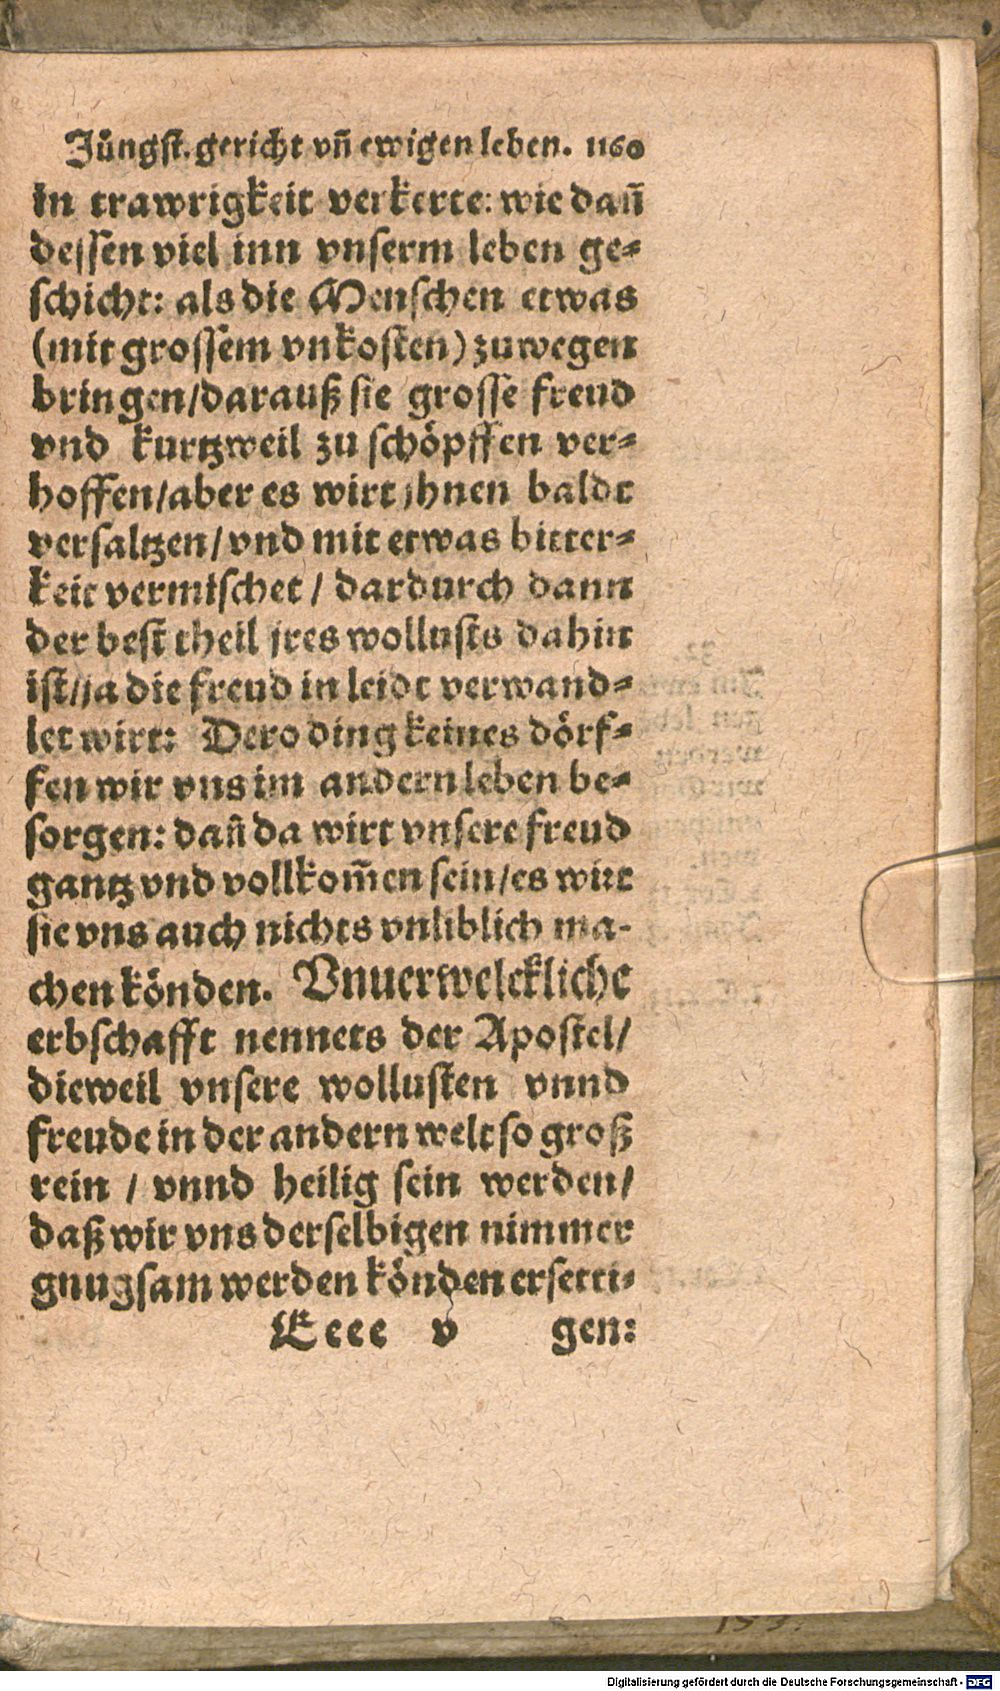 Jüngst. gericht vñ ewigen leben. 1160
in trawrigkeit verkerte: wie dañ
dessen viel inn vnserm leben ge-
schicht: als die Menschen etwas
(mit grossem vnkosten) zuwegen
bringen/darauß sie grosse freud
vnd kurtzweil zu schöpffen ver-
hoffen/aber es wirt jhnen baldt
versaltzen/vnd mit etwas bitter-
keit vermischet / dardurch dann
der best theil jres wollusts dahin
ist/ja die freud in leidt verwand-
let wirt: Dero ding keines dörf-
fen wir vns im andern leben be-
sorgen: dañ da wirt vnsere freud
gantz vnd vollkom̃en sein/es wirt
sie vns auch nichts vnliblich ma-
chen könden. Vnuerwelckliche
erbschafft nennets der Apostel/
dieweil vnsere wollusten vnnd
freude in der andern welt so groß
rein / vnnd heilig sein werden/
daß wir vns derselbigen nimmer
gnugsam werden könden ersetti-
Eeee v gen:
Digitalisierung gefördert durch die Deutsche Forschungsgemeinschaft - DFG